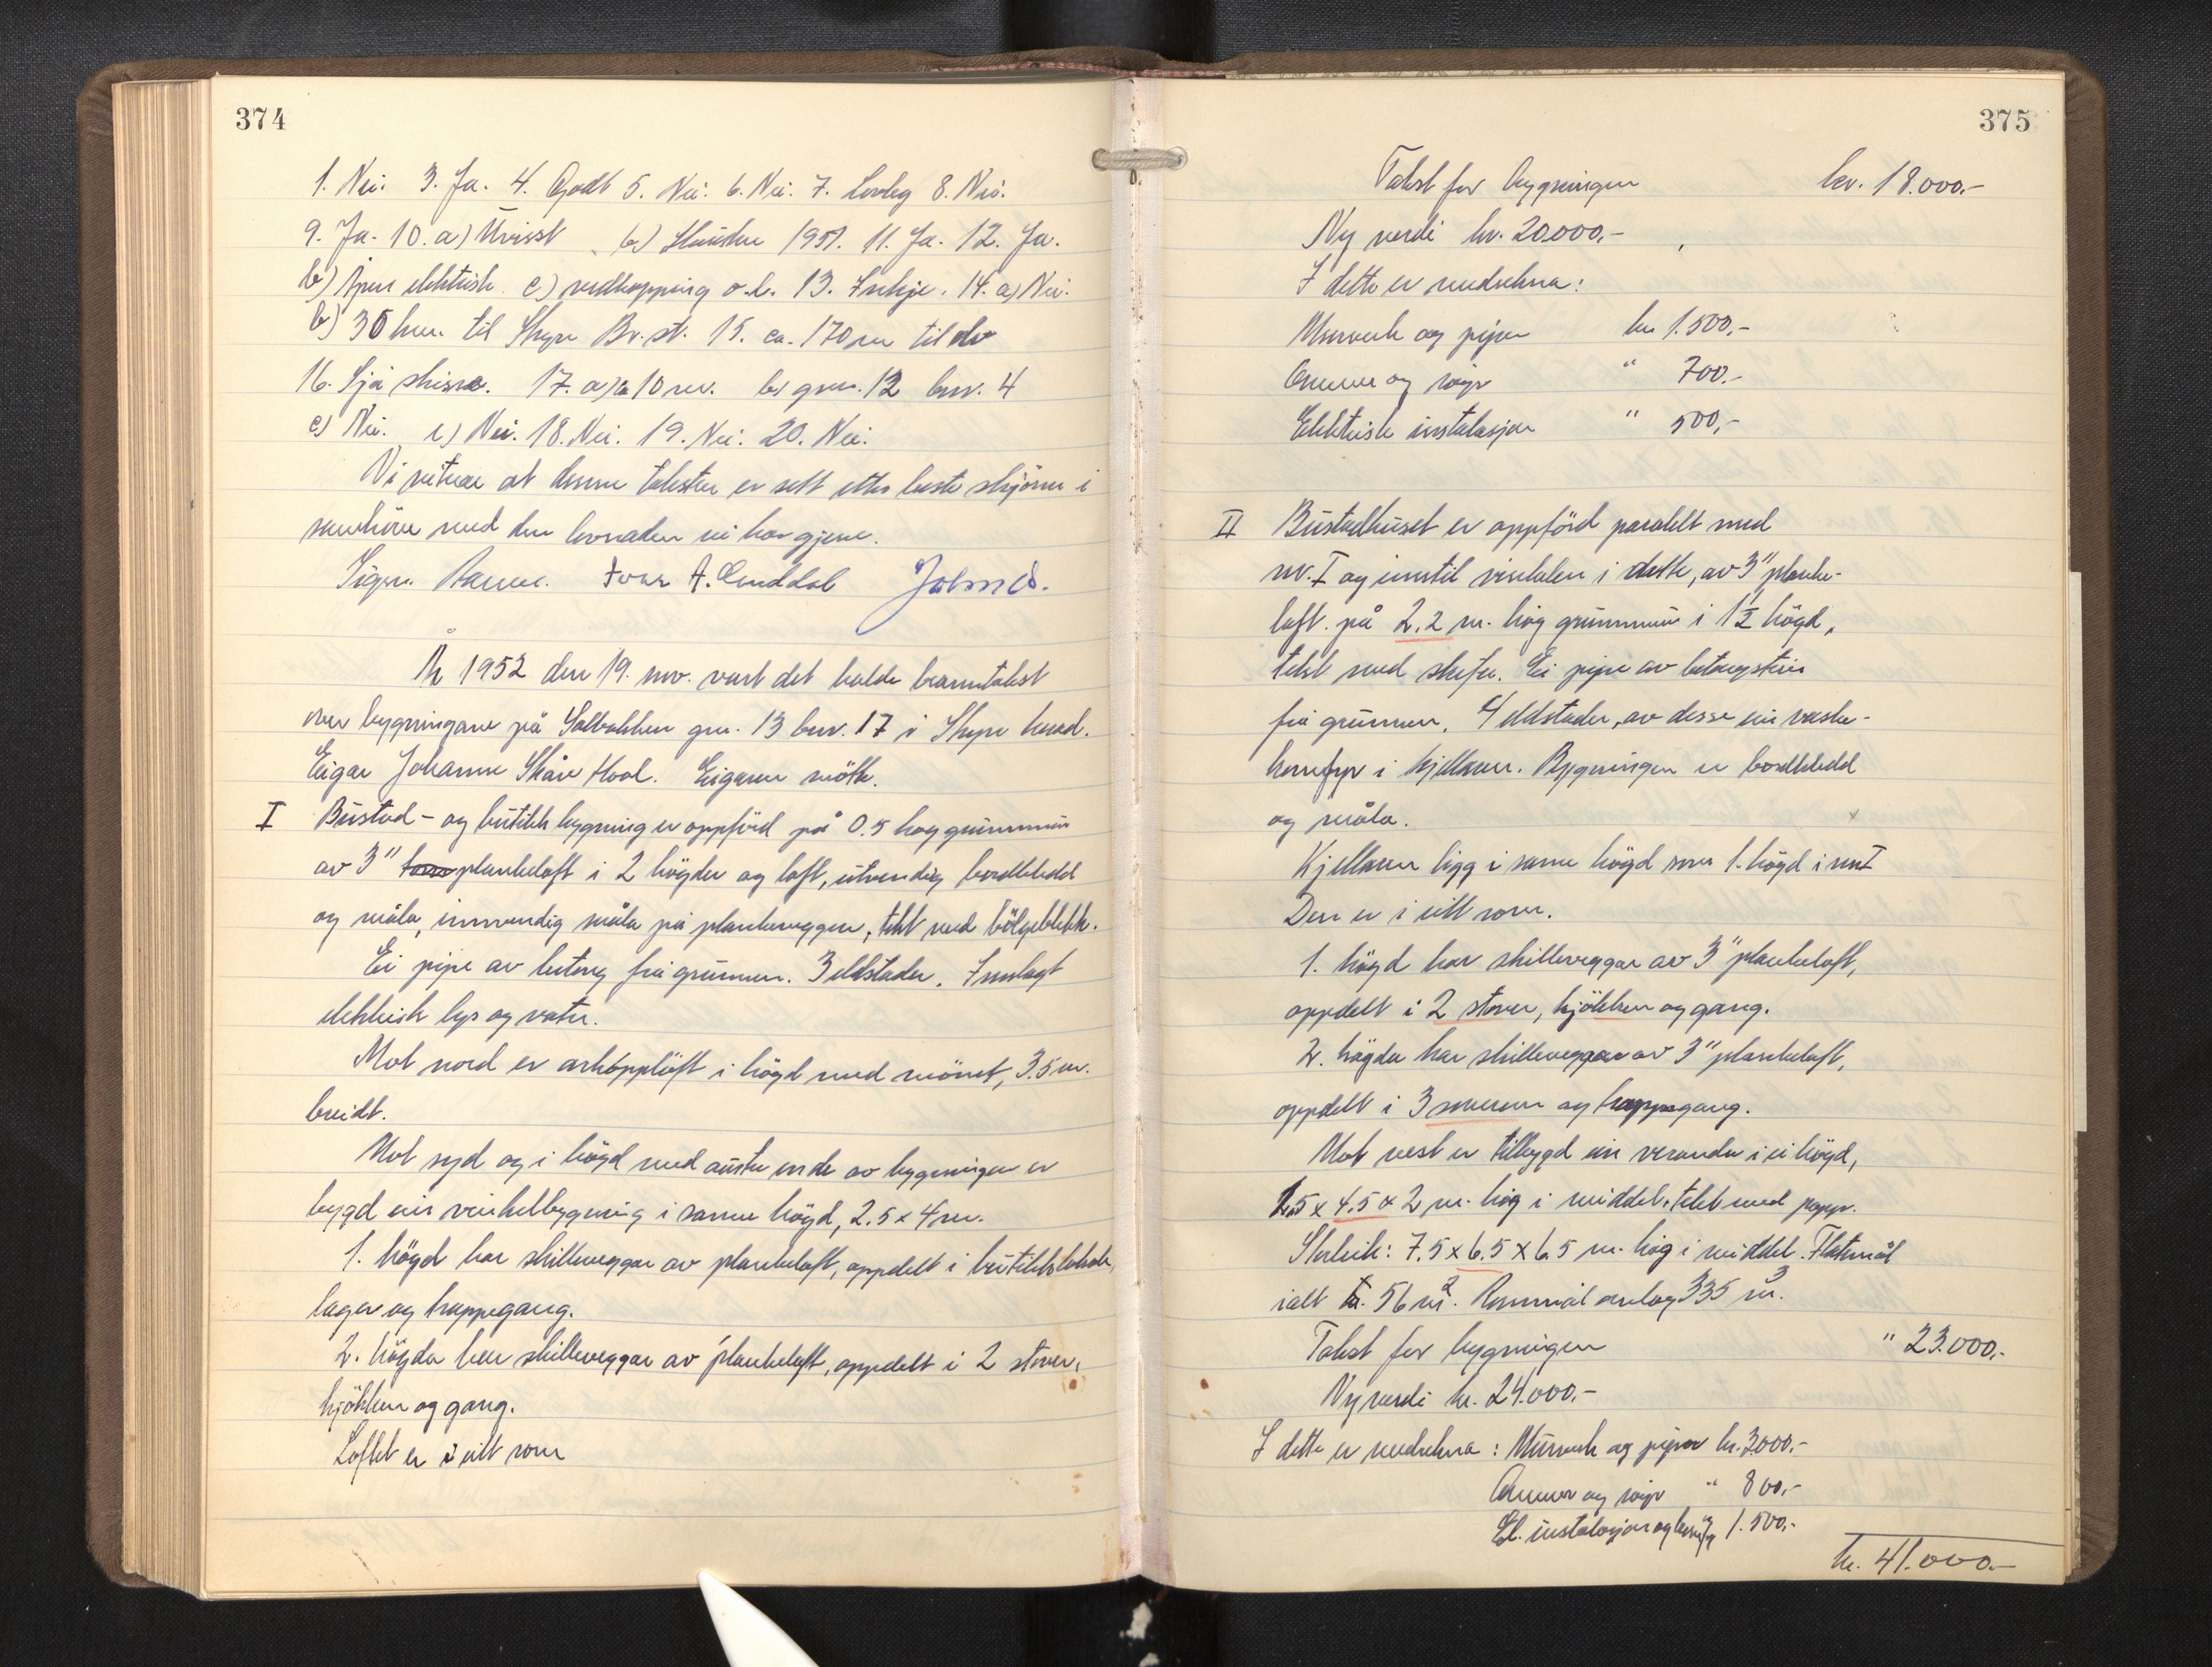 374
1. Nei. 3. Ja. 4. Godt 5. Nei. 6. Nei. 7. Lovleg 8. Nei.
9. Ja. 10. a) Uvisst b) Hausten 1951. 11. Ja. 12. Ja.
b) Åpen elektrisk. c) vedhopping o.l. 13. Inkje. 14. a) Nei.
b) 30 km. til Br.st. 15. ca. 170 m til elv
16. Sjå skissa. 17. a) ca 10 m. b) gnr. 12 bnr. 4
c) Nei. e) Nei. 18. Nei. 19. Nei. 20. Nei.
Vi vitnar at denne taksten er sett etter beste skjönn i
samhöve med den lovnaden vi har gjeve.
Sign. Ivar A.
År 1952 den 19. nov. vart det halde branntakst
over bygningane på Solbakken gnr. 13 bnr. 17 i herad.
Eigar Johanne Skåre Hool. Eigaren mötte.
I Bustad- og butikkbygning er oppförd på 0.5 hög grunnmur
av 3" plankeloft i 2 högder og loft, utvendig bordkledd
og måla, innvendig måla på plankeveggen, tekt med bölgeblekk.
Ei pipe av betong frå grunnen. 3 eldstader. Innlagt
elektrisk lys og vatn.
Mot nord er arkoppløft i högd med mönet, 3.5 m.
breidt.
Mot syd og i högd med austre ende av bygningen er
bygd ein vinkelbygning i samme högd, 2.5 x 4 m.
1. högd har skilleveggar av plankeloft, oppdelt i butikklokale,
lager og trappegang.
2. högda har skilleveggar av plankeloft, oppdelt i 2 stover,
kjökken og gang.
Loftet er i eitt rom
375
Takst for bygningen kr. 18.000.-
Ny verdi kr. 20.000.-
I dette er medrekna:
Murverk og pipe kr 1.500.-
Omner og röyr " 700.-
Elektrisk instalasjon " 500.-
II Bustadhuset er oppförd paralelt med
nr. I og inntil vinkelen i dette, av 3" planke-
loft. på 2.2 m. hög grunnmur i 1½ högd,
tekt med skifer. Ei pipe av betongstein
frå grunnen. 4 eldstader, av desse ein vaske-
i kjellaren. Bygningen er bordkledd
og måla.
Kjellaren ligg i same högd som 1. högd i nr I
Den er i eitt rom.
1. högd har skilleveggar av 3" plankeloft,
oppdelt i 2 stover, kjökken og gang.
2. högda har skilleveggar av 3" plankeloft,
oppdelt i 3 soverom og trappegang.
Mot vest er tilbygd ein veranda i ei högd,
1.5 x 4.5 x 2 m. hög i middel. tekt med papp.
Storleik: 7.5 x 6.5 x 6.5 m. hög i middel. Flatemål
ialt 56 m². Rommål omlag 335 m³.
Takst for bygningen " 23.000.-
Nyverdi kr. 24.000.-
I dette er medrekna: Murverk og piper kr. 3000.-
Omner og röyr " 800.-
El. instalasjon og 1.500.-
kr. 41.000.-